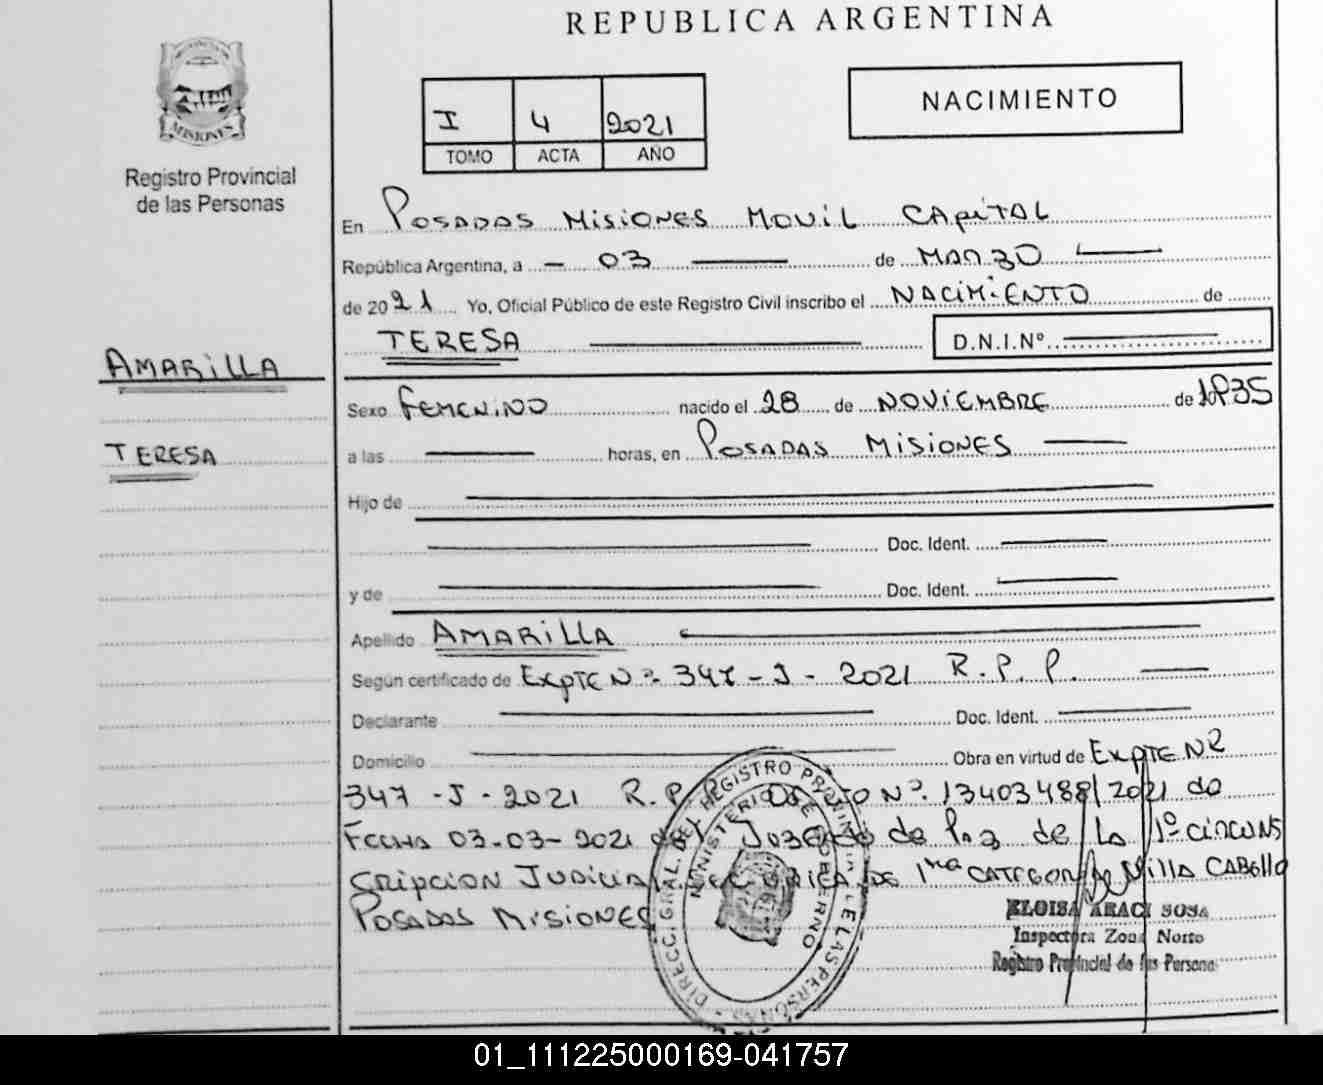 REPUBLICA ARGENTINA
MISIONES
Registro Provincial
de las Personas
I 4 2021
TOMO ACTA AÑO
NACIMIENTO
En POSADAS MISIONES MOVIL CAPITAL
República Argentina, a - 03 de MARZO
de 2021 Yo, Oficial Público de este Registro Civil inscribo el NACIMIENTO de
TERESA D.N.I.Nº
AMARILLA
Sexo FEMENINO nacido el 28 de NOVIEMBRE de 1935
TERESA
a las horas, en POSADAS MISIONES
Hijo de
Doc. Ident.
y de Doc. Ident.
Apellido AMARILLA
Según certificado de EXPTE Nº 347-J-2021 R.P.P.
Declarante Doc. Ident.
Domicilio Obra en virtud de EXPTE Nº
347-J-2021 R.P.P. Nº 13403488/2021 de
FECHA 03-03-2021 del JUZGADO de Paz de La 1º CIRCUNS
CRIPCION JUDICIAL DE 1ra CATEGORIA de Villa CABELLO
POSADAS MISIONES
DIRECC. GRAL. DEL REGISTRO PROVINCIAL DE LAS PERSONAS
MINISTERIO DE GOBIERNO
ELOISA ARACI SOSA
Inspectora Zona Norte
Registro Provincial de las Personas
01_111225000169-041757